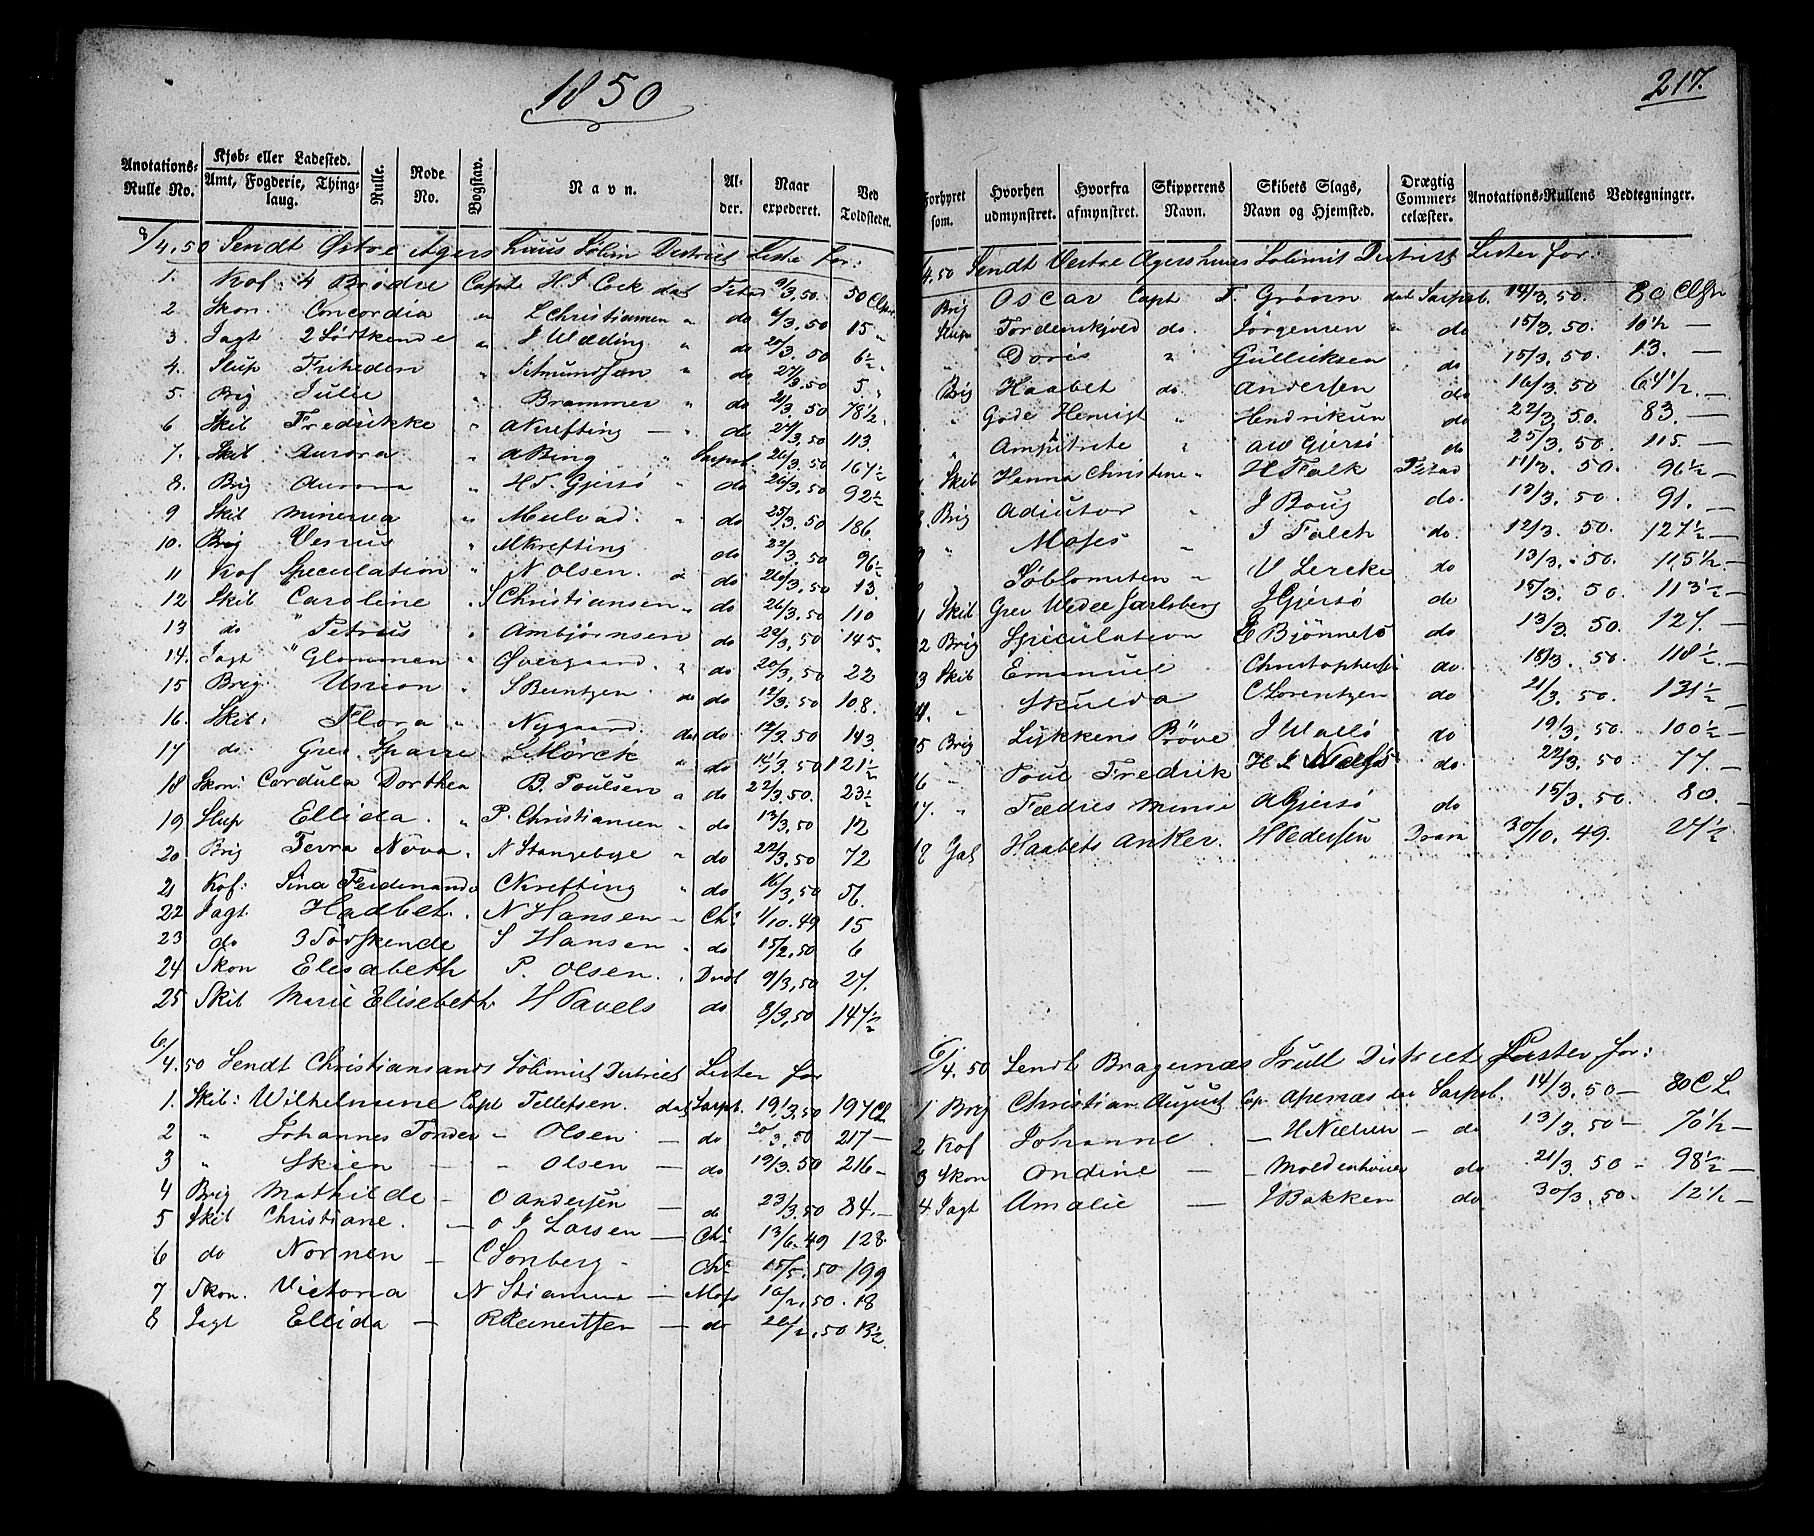 1850
Anotations-Rulle No. Kjøb- eller Ladested. Amt, Fogderie, Thinglaug. Rulle. Rode No. Bogstav. Navn. Alder. Naar expederet. Ved Toldstedet.
8/4.50 Sendt Østre Agershuus Sølim District Liste for:
1. Kof: 4 Brødre Capt H. J. Cock dat Fstad 9/3.50. 50 Clstr
2 Skon. Concordia " L Christiansen " do 6/3.50 15 "
3. Jagt 2 Södskende " J Wedding " do 20/3.50 6½ "
4. Slup Friheden " S Amundsen " do 27/3.50 5. "
5. Brig Julie " Brammer " do 21/3.50 78½
6 Skib Fredrikke " A Krefting — " do 24/3.50 113.
7. Skib Aurora " A Bing " Sarpsb. 26/3.50 167½
8. Brig Aurora " H. F. Gjersö " do 26/3.50 92½
9 Skib Minerva " Mulvad. " do 25/3.50 186.
10. Brig Venus " M Krefting do 22/3.50 96½
11 Kof Speculation " N Olsen. " do 26/3.50 13.
12 Skib Caroline " S Christiansen " do 26/3.50 110
13 do " Petrus " Ambjørnsen do 22/3.50 145.
14. Jagt " Glommen " Øvergaard. " do 20/3.50 22
15 Brig Union " S Bentzen. do do 12/3.50 108.
16. Skib: Flora " Nygaard. dat do 12/3.50 143.
17 do. Grev Sparre L Mörck " do 14/3.50 121½
18 Skon: Cordula Dorthea B. Poulsen " do 22/3.50. 23½
19 Slup Ellida. " P. Christiansen " do 13/3.50 12
20 Brig Terra Nova. " N Stangebye " do 22/3.50 72
21 Kof: Sina Ferdinande C Krefting " do 16/3.50 56.
22 Jagt. Haabet. " N Hansen " Cha 1/10.49 15
23 do 3 Södskende S Hansen " do 15/2.50 6
24 Skon Elisabeth P. Olsen. " Dröb 9/3.50 27.
25 Skib Marie Elisebeth H Pavels do 8/3.50 147½
6/4.50 Sendt Christiansands Sölimit District Lister for
1. Skib: Wilhelmine Capt Tellefsen. dat Sarpsb. 19/3.50 197 Cl.
2 " Johannes Tønder — Olsen — do 20/3.50 217 —
3 " Skien — " Olsen — do 19/3.50 216 —
4 Brig Mathilde — O Andersen — do 23/3.50 84. —
5 Skib Christiane. — O J Larsen — Cha 13/6.49 128.
6 do Nornen — C Sonberg — Cha 15/5.50 199
7 Skon. Victoria — N Stiansen — Moss 16/2.50. 18
8 Jagt Ellida — R Reinertsen — do 26/2.50 13½
217.
Forhyret som. Hvorhen udmynstret. Hvorfra afmynstret. Skipperens Navn. Skibets Slags, Navn og Hjemsted. Drægtig Commercelæster. Anotations-Rullens Vedtegninger.
/4.50 Sendt Vestre Agershuus Sølimit District Lister for:
Brig Oscar Capt T. Grören dat Sarpsb. 14/3.50. 80 Clstr
Slup Tordenskjold do. Jørgensen " do 15/3.50. 10½ —
" Doris " Gulliksen . do 15/3.50. 13. —
Brig Haabet do. Andersen do 16/3.50 64½. —
" Gode Hensigt " Hendriksen do 22/3.50. 83. —
" Amphitrite " AW Gjersö do 25/3.50. 115. —
Skib Hanna Christine " H Falk Fstad 11/3.50. 96½ —
Brig Adiutor " J Boug do. 13/3.50. 91. —
" Moses " J Falch do. 12/3.50. 127½ —
Søblomsten " V Lercke do 13/3.50. 115½ —
1 Skib Grev Wedel Jarlsberg J Gjersö do 15/3.50. 113½ —
2 Brig Speculation E Bjönness do 13/3.50. 127. —
3 Skib Emanuel Christophersen do 18/3.50. 118½. —
4. " Skulda C Lorentzen do 21/3.50. 131½ —
5 Brig Lykkens Pröve J Wallö do 19/3.50. 100½ —
6 — Poul Fredrik H L do. 22/3.50. 77. —
17. " Fædres Minde A Gjersö do 15/3.50. 80. —
18 Gal Haabets Anker. H Pedersen Dram 30/10.49. 27½
6/4.50 Sendt Bragernæs Irull District Lister for:
1 Brig Christian August Cap. Apenæs do Sarpsb. 14/3.50 — 80 C L.
2 Kof Johanne. — H Nielsen — do 13/3.50 — 70½ —
3 Skon Ondine — — Moldenhauer do 21/3.50 — 98½ —
4 Jagt Amalie — J Bakken do 30/3.50. 12½ —